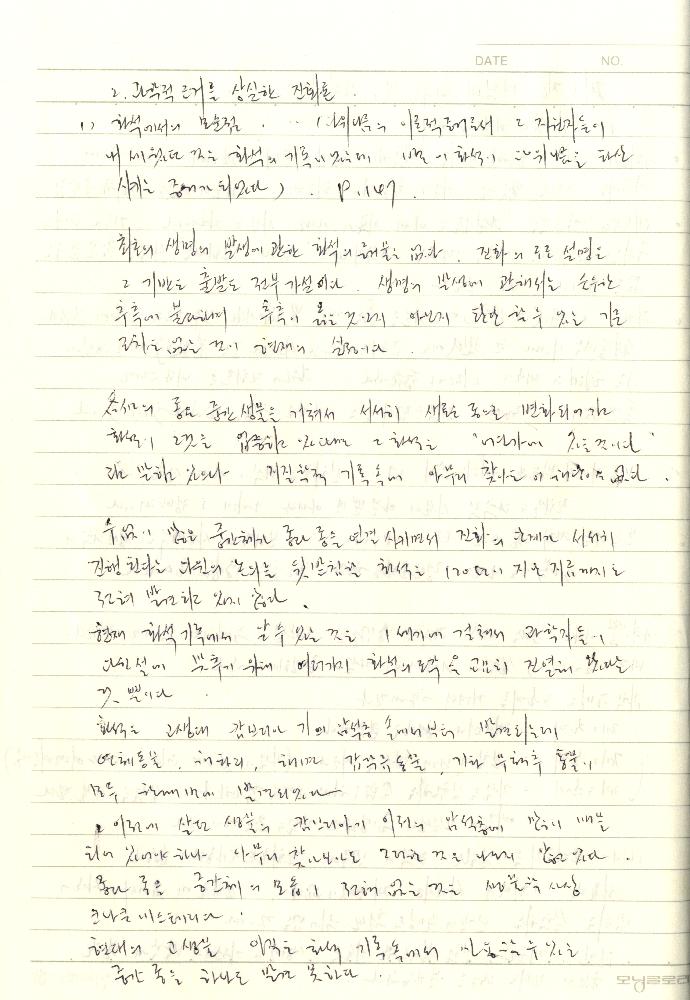 DATE NO.
2. 과학적 근거를 상실한 진화론
1) 화석에서의 모순점 . . . (다위니즘의 이론적 근거로서 그 지원자들이
내세웠던 것은 화석의 기록이었는데 이 화석이 다위니즘을 파산
시키는 증거가 되었다) . P.147.
최초의 생명의 발생에 관한 화석의 근거물은 없다. 진화의 모든 설명은
그 기반도 출발도 전부 가설이다. 생명의 발생에 관해서는 순수한
추측에 불과하며 추측이 옳은 것인지 아닌지 판단할 수 있는 기준
조차도 없는 것이 현재의 실정이다.
종은 중간 생물을 거쳐서 서서히 새로운 종으로 변화되어 가고
화석이 그것을 입증하고 있다면 그 화석은 "어딘가에 있을 것이다"
라고 말하고 있으나 지질학적 기록 속에 아무리 찾아도 이 없다.
수없이 많은 중간체가 종과 종을 연결시키면서 진화의 단계가 서서히
진행한다는 다윈의 논의를 뒷받침할 화석은 120년이 지난 지금까지도
전혀 발견되고 있지 않다.
현재 화석 기록에서 알 수 있는 것은 1세기에 걸쳐서 과학자들이
다윈설에 맞추기 위해 여러가지 화석의 조각을 교묘히 진열해 왔다는
것 뿐이다.
화석은 고생대 캄브리아기의 암석층 속에서부터 발견되는데
연체동물, 해파리, 해면, 갑각류동물, 기타 무척추 동물이
모두 한꺼번에 발견되었다
이전에 살던 생물의 캄브리아기 이전의 암석층에 많이 매몰
되어 있어야 하나 아무리 찾아보아도 그러한 것은 나타나지 않고 있다.
종과 종을 중간체의 모습이 전혀 없는 것은 생물학 사상
크나큰 미스테리다.
현대의 고생물 학은 화석 기록 속에서 수 있는
중간 종을 하나도 발견 못하다.
모닝글로리